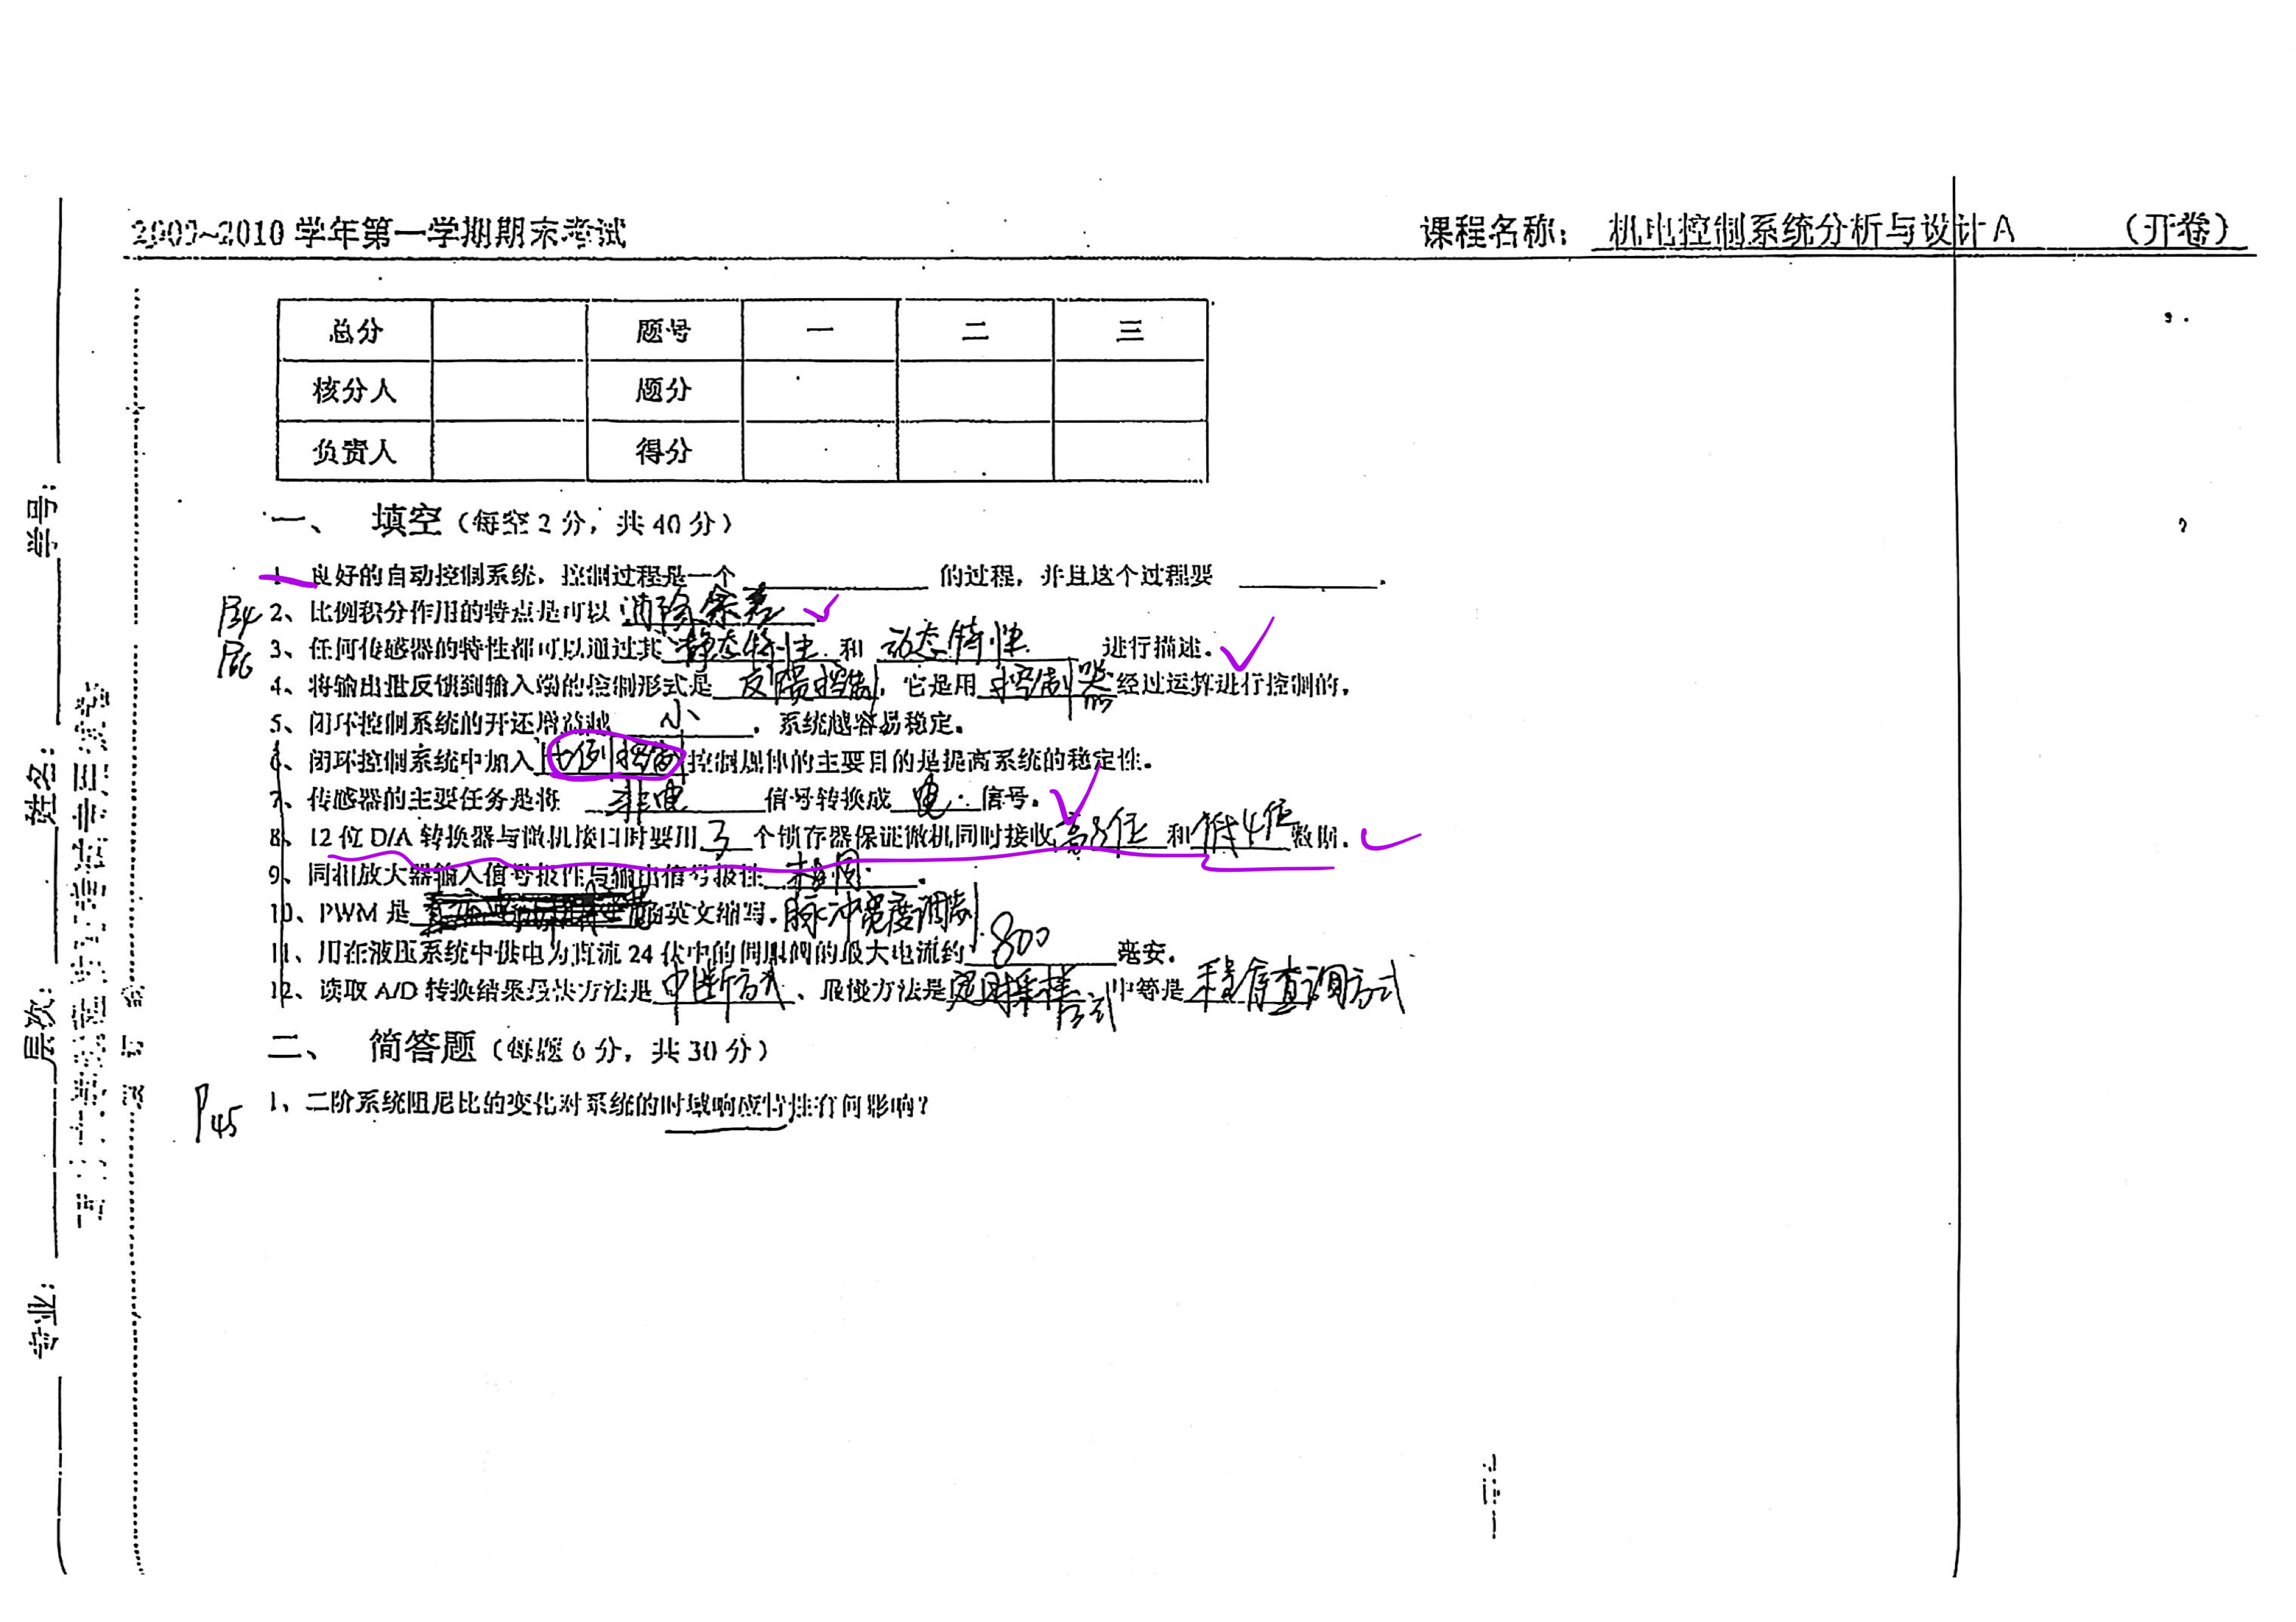 2009~2010 学年第一学期期末考试
课程名称: 机电控制系统分析与设计 A (开卷)
总分 题号 一 二 三
核分人 题分
负责人 得分
一、 填空（每空 2 分，共 40 分）
1、良好的自动控制系统，控制过程是一个 的过程，并且这个过程要 。
P34 2、比例积分作用的特点是可以 消除余差
P66 3、任何传感器的特性都可以通过其 静态特性 和 动态特性 进行描述。
4、将输出量反馈到输入端的控制形式是 反馈控制，它是用 控制器 经过运算进行控制的。
5、闭环控制系统的开环增益越 小 ，系统越容易稳定。
6、闭环控制系统中加入 比例控制 控制规律的主要目的是提高系统的稳定性。
7、传感器的主要任务是将 非电 信号转换成 电 信号。
8、12 位 D/A 转换器与微机接口时要用 3 个锁存器保证微机同时接收 高8位 和 低4位 数据。
9、同相放大器输入信号极性与输出信号极性 相同 。
10、PWM 是 的英文缩写。脉冲宽度调制
11、用在液压系统中供电为直流 24 伏中的伺服阀的最大电流约 800 毫安。
12、读取 A/D 转换结果最快方法是 中断方式 、最慢方法是 定时采样方式 、中等是 程序查询方式
二、 简答题（每题 6 分，共 30 分）
P45 1、二阶系统阻尼比的变化对系统的时域响应特性有何影响？
学号:
姓名:
层次:
专业:
装 订 线